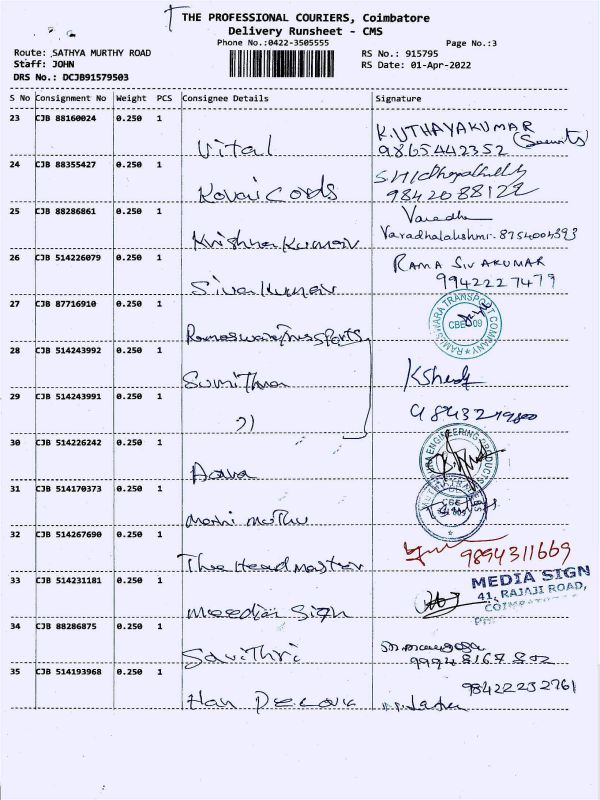 THE PROFESSIONAL COURIERS, Coimbatore
Delivery Runsheet - CMS
Phone No.:0422-3505555
Page No.:3
Route: SATHYA MURTHY ROAD
RS No.: 915795
Staff: JOHN
RS Date: 01-Apr-2022
DRS No.: DCJB91579503
S No Consignment No Weight PCS Consignee Details Signature
23 CJB 88160024 0.250 1 Vital K.UTHAYAKUMAR
9865442352
24 CJB 88355427 0.250 1 Kovai Cords
9842088122
25 CJB 88286861 0.250 1 Krishna Kumar Varadha
Varadhalakshmi - 8754004393
26 CJB 514226079 0.250 1 Sivakumar RAMA SIVAKUMAR
9942227479
27 CJB 87716910 0.250 1 RAMESWARA TRANSPORT COMPANY
CBE 09
28 CJB 514243992 0.250 1 Sumithra
29 CJB 514243991 0.250 1 "
30 CJB 514226242 0.250 1 ENGINEERING PRODUCTS
31 CJB 514170373 0.250 1 Mani Muthu
CBE
32 CJB 514267690 0.250 1 The Head Master 9894311669
33 CJB 514231181 0.250 1 Meedia Sign MEDIA SIGN
41, RAJAJI ROAD,
34 CJB 88286875 0.250 1 Savithri
9994816782
35 CJB 514193968 0.250 1 Hari 9842232761